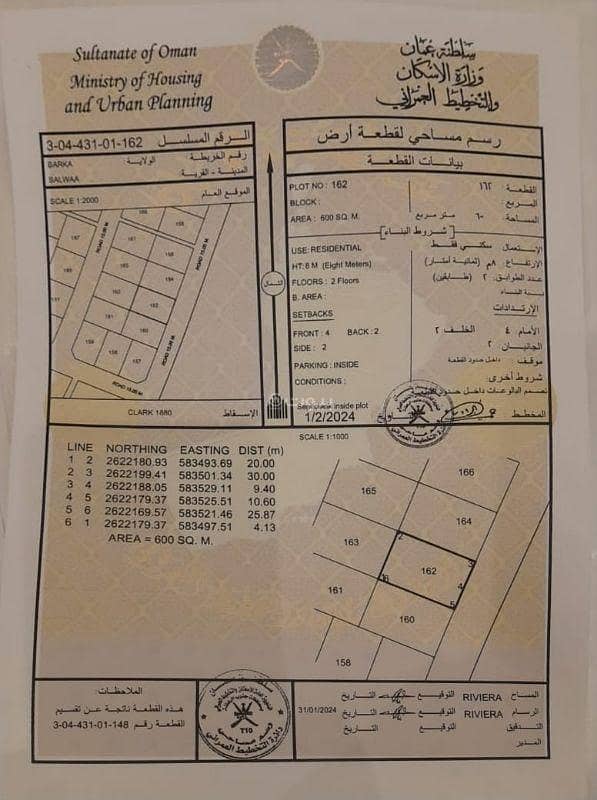 Sultanate of Oman
Ministry of Housing
and Urban Planning
سلطنة عمان
وزارة الإسكان
والتخطيط العمراني
3-04-431-01-162 الرقم المسلسل
BARKA الولاية رقم الخريطة
SALWAA المدينة - القرية
SCALE 1:2000 الموقع العام
166
167
165
164
163
162
161
160
159
157
158
ROAD 15.00 M
ROAD 15.00 M
ROAD 15.00 M
CLARK 1880 الإسقاط
الشمال
رسم مساحي لقطعة أرض
بيانات القطعة
PLOT NO : 162 القطعة : ١٦٢
BLOCK : المربع :
AREA : 600 SQ. M. المساحة : ٦٠٠ متر مربع
[شروط البناء]
USE: RESIDENTIAL الإستعمال : سكني فقط
HT: 8 M (Eight Meters) الإرتفاع : ٨م (ثمانية أمتار)
FLOORS : 2 Floors عدد الطوابق : ٢ (طابقين)
B. AREA : نسبة البناء
SETBACKS الإرتدادات
FRONT : 4 BACK : 2 الأمام : ٤ الخلف ٢
SIDE : 2 الجانبان ٢
PARKING : INSIDE موقف : داخل حدود القطعة
CONDITIONS : شروط أخرى :
inside plot
1/2/2024 المخطط
SCALE 1:1000
LINE NORTHING EASTING DIST (m)
1 2 2622180.93 583493.69 20.00
2 3 2622199.41 583501.34 30.00
3 4 2622188.05 583529.11 9.40
4 5 2622179.37 583525.51 10.60
5 6 2622169.57 583521.46 25.87
6 1 2622179.37 583497.51 4.13
AREA = 600 SQ. M.
166
165
164
163
2
3
162
4
16
161
5
160
158
الملاحظات:
هذه القطعة ناتجة عن تقسيم
القطعة رقم 3-04-431-01-148
T10
دائرة التخطيط العمراني
31/01/2024
المساح RIVIERA التوقيع التاريخ
الرسام RIVIERA التوقيع التاريخ
التدقيق التوقيع التاريخ
المدير